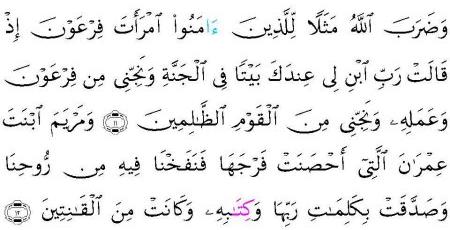 وَضَرَبَ ٱللَّهُ مَثَلًا لِّلَّذِينَ ءَامَنُوا۟ ٱمْرَأَتَ فِرْعَوْنَ إِذْ
قَالَتْ رَبِّ ٱبْنِ لِى عِندَكَ بَيْتًا فِى ٱلْجَنَّةِ وَنَجِّنِى مِن فِرْعَوْنَ
وَعَمَلِهِۦ وَنَجِّنِى مِنَ ٱلْقَوْمِ ٱلظَّٰلِمِينَ ١١ وَمَرْيَمَ ٱبْنَتَ
عِمْرَٰنَ ٱلَّتِىٓ أَحْصَنَتْ فَرْجَهَا فَنَفَخْنَا فِيهِ مِن رُّوحِنَا
وَصَدَّقَتْ بِكَلِمَٰتِ رَبِّهَا وَكِتَٰبِهِۦ وَكَانَتْ مِنَ ٱلْقَٰنِتِينَ ١٢